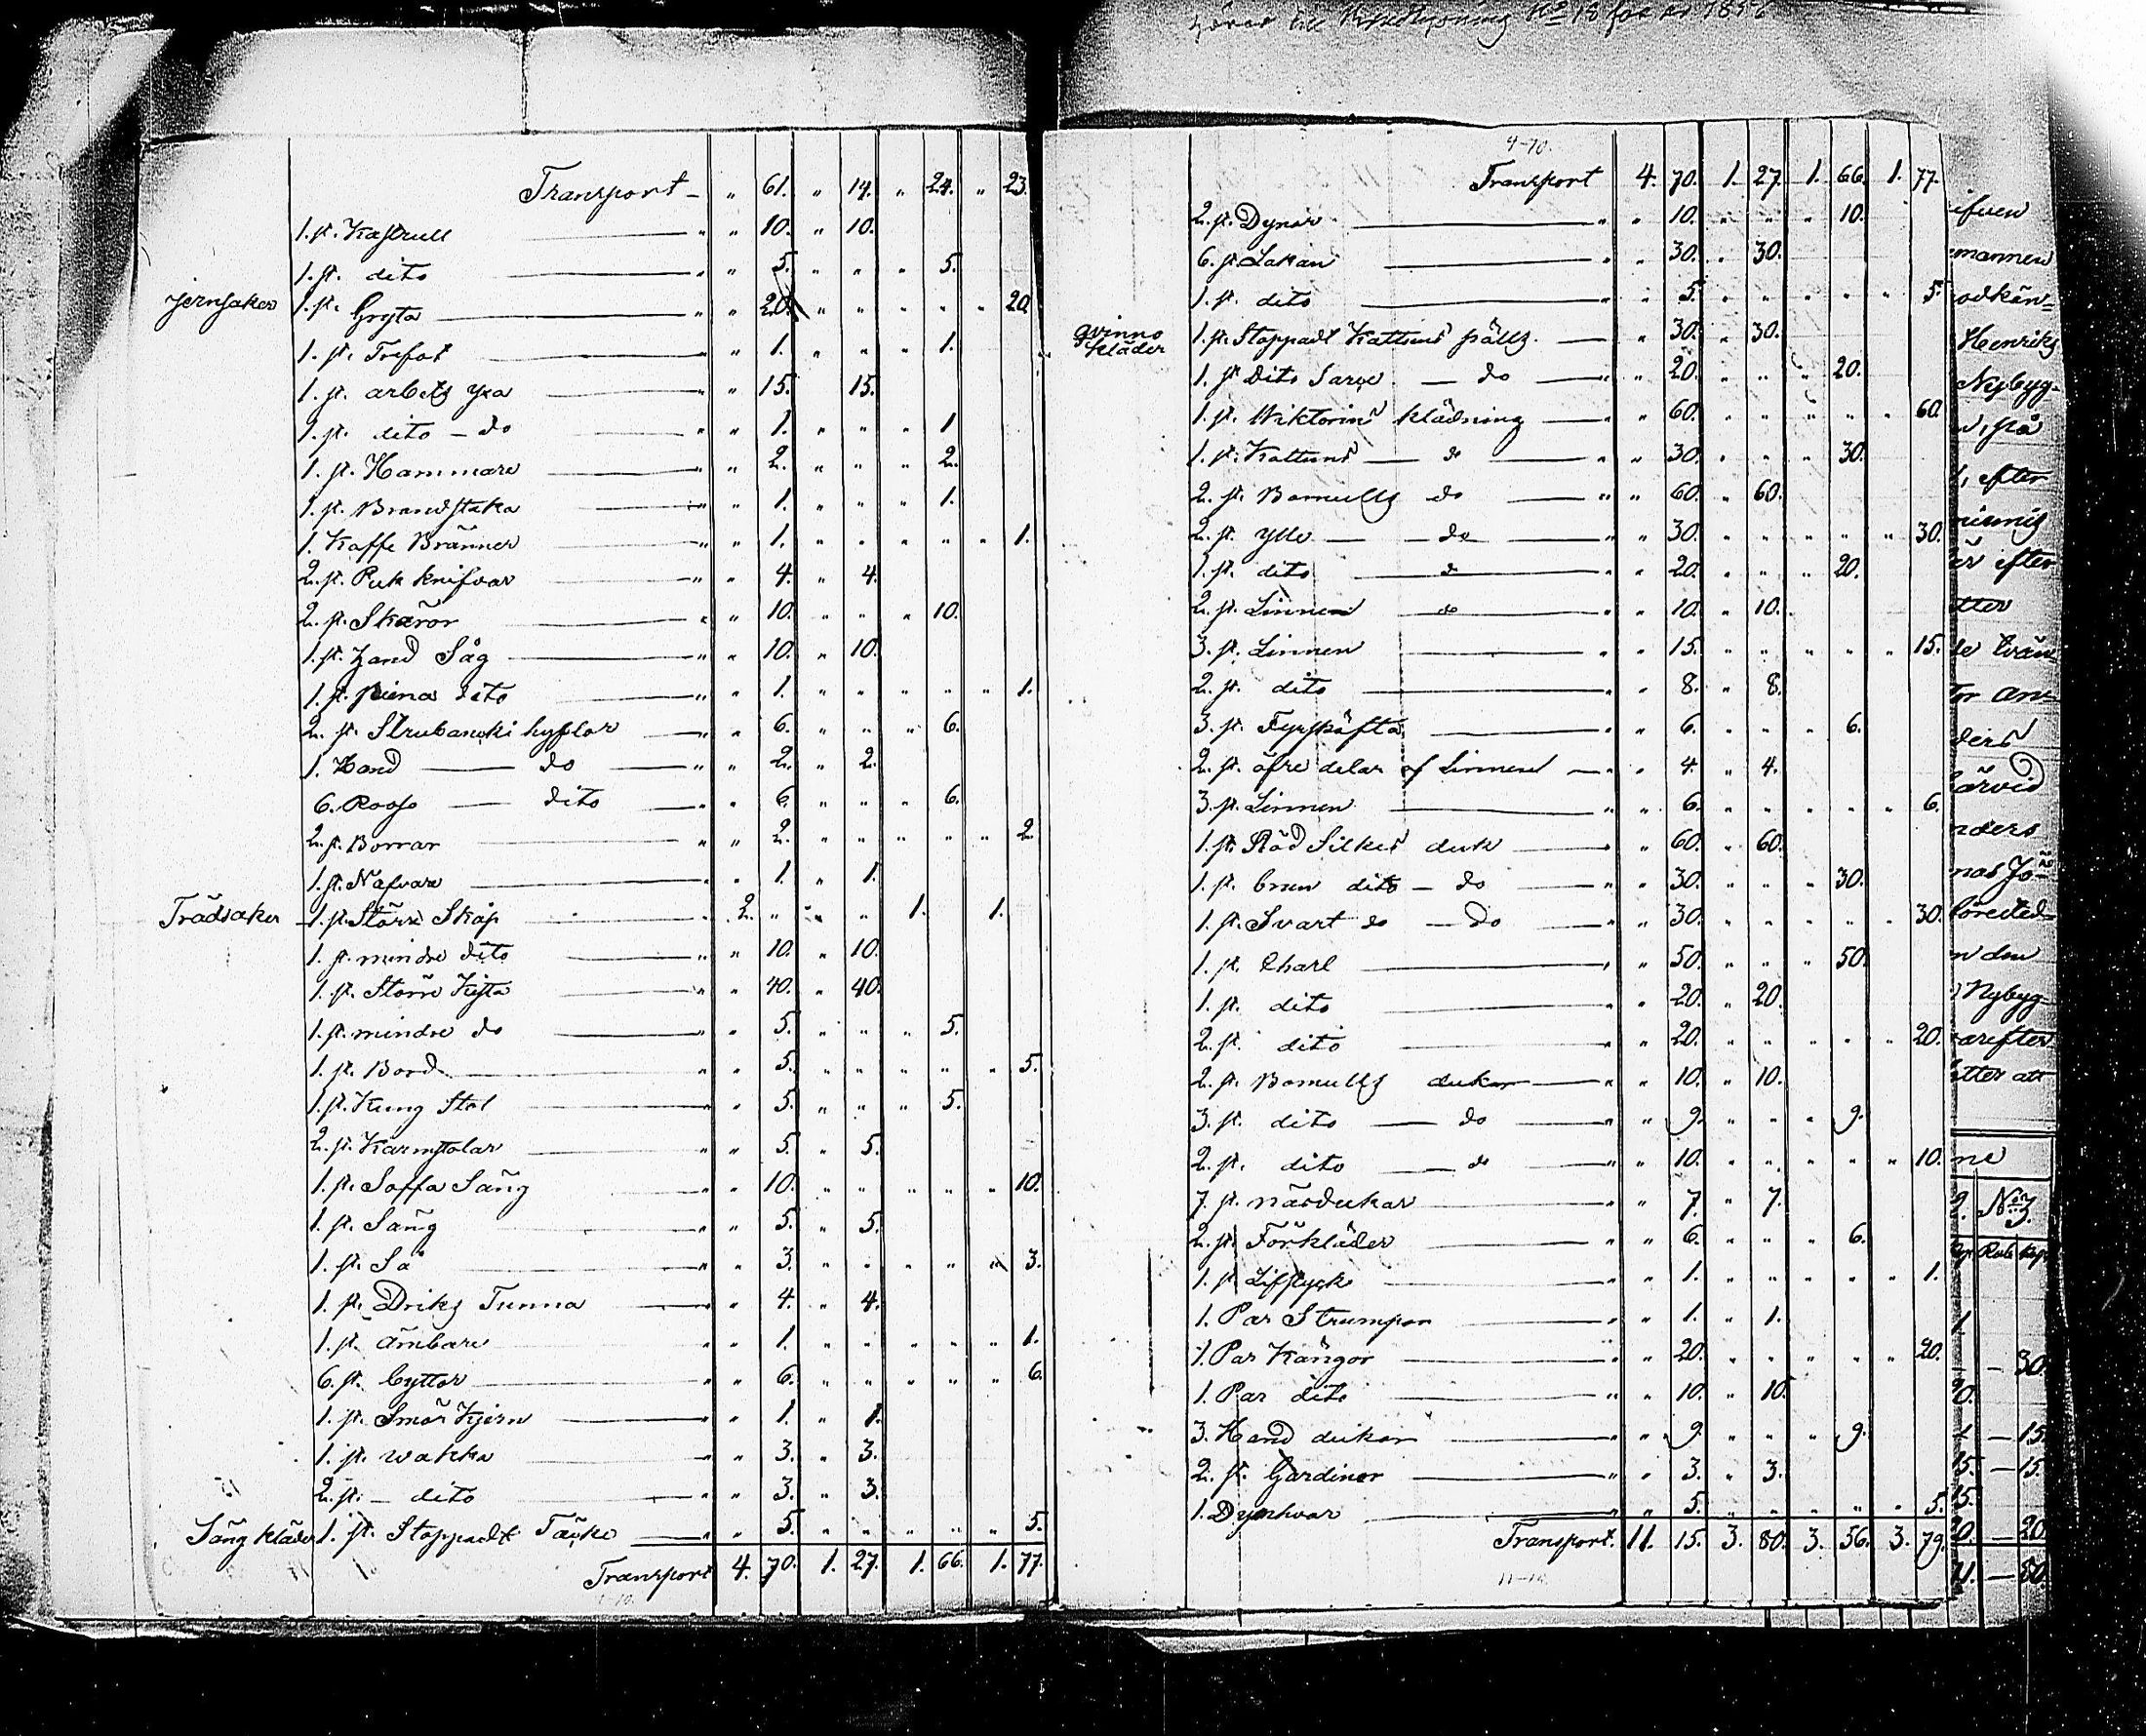 Transport - " 61. " 14. " 24. " 23.
1. st. Kastrull " " 10. " 10.
1. st. dito " " 5. " " " 5.
jernsaker 1. st. Gryta " " 20. " " " " " 20.
1. st. Trefot " " 1. " " " 1.
1. st. arbets yxa " " 15. 15.
1. st. dito - do " " 1. " " " 1
1. st. Hammare " " 2. " " " 2.
1. st. Brandstaka " " 1. " " " 1.
1. Kaffe Bränner " " 1. " " " " " 1.
2. st. Puk knifvar " " 4. " 4.
2. st. Skäror " " 10. " " " 10.
1. st. Hand Såg " " 10. " 10.
1. st. dito " " 1. " " " " " 1.
2. st. hyflar " 6. " " " 6.
1. Hand do " " 2. " 2.
6. dito " 6. " " " 6.
2. st. Borrar " " 2. " " " " " 2.
1. st. Nafvare " 1. " 1.
Trädsaker 1. st. Större Skåp 2. " " " 1. 1.
1. st. mindre dito " " 10. " 10.
1. st. Större Kista " " 40. " 40.
1. st. mindre do " " 5. " " " 5.
1. st. Bord " " 5. " " " " " 5.
1. st. Kung Stol " " 5. " " " 5.
2. st. Karmstolar " " 5. " 5.
1. st. Soffa Säng " " 10. " " " " " 10.
1. st. Säng " 5. " 5.
1. st. Så " " 3. " " " " " 3.
1. st. Driks Tunna " 4. " 4.
1. st. ämbare " " 1. " " " " " 1.
6. st. byttor " " 6. " " " " " 6.
1. st. Smör Kjern " " 1. " 1.
1. st. wakka " " 3. " 3.
2. st. - dito " " 3. " 3.
Säng kläder 1. st. Stoppadt Täcke " " 5. " " " " " 5.
Transport 4. 70. 1. 27. 1. 66. 1. 77.
hörer till No 18 för år 1856
4-70.
Transport 4. 70. 1. 27. 1. 66. 1. 77.
2. st. Dynor " " 10. " " " 10.
6. st. Lakan " " 30. " 30.
1. st. dito " " 5. " " " " " 5.
qvinno kläder 1. st. Stoppadt Kattuns pälls. " 30. " 30.
1. st. Dito Sarge - do " " 20. " " " 20.
1. st. Wiktorin klädning " " 60. " " " " " 60.
1. st. Kattuns do " " 30. " " " 30.
2. st. Bomulls do " " 60. " 60.
2. st. Ylle do " " 30. " " " " " 30.
1. st. dito do " " 20. " " " 20.
2. st. Linnen do " " 10. " 10.
3. st. Linnen " " 15. " " " " " 15.
2. st. dito " 8. " 8.
3. st. Fyrskäfta " " 6. " " " 6.
2. st. öfre delar af Linnen " " 4. " 4.
3. st. Linnen " " 6. " " " " " 6.
1. st. Röd Silkes duk " " 60. " 60.
1. st. brun dito - do " " 30. " " " 30.
1. st. Svart do - Do " " 30. " " " " " 30.
1. st. Charl " 50. " " " 50.
1. st. dito " 20. " 20.
2. st. dito " " 20. " " " " " 20.
2. st. Bomulls dukar " " 10. " 10.
3. st. dito do " " 9. " " " 9.
2. st. dito do " " 10. " " " " " 10.
7. st. näsdukar " " 7. " 7.
2. st. Förkläder " " 6. " " " 6.
1. st. Lifstycke " " 1. " " " " " 1.
1. Par Strumpor " " 1. " 1.
1. Par Kängor " " 20. " " " " " 20.
1. Par dito " " 10. " 10.
3. Hand dukar " " 9. " " " 9.
2. st. Gardiner " " 3. " 3.
1. Dynhvar " " 5. " " " " " 5.
Transport. 11. 15. 3. 80. 3. 56. 3. 79.
ifven
mannen
odkän-
Henriks
Nybyg-
på
, efter
är efter
tter
de
nders
Nybyg-
arefter
tter att
No 3.
Rub Kop
- 30.
- 15.
15. - 15.
15.
20. - 20.
- 80.